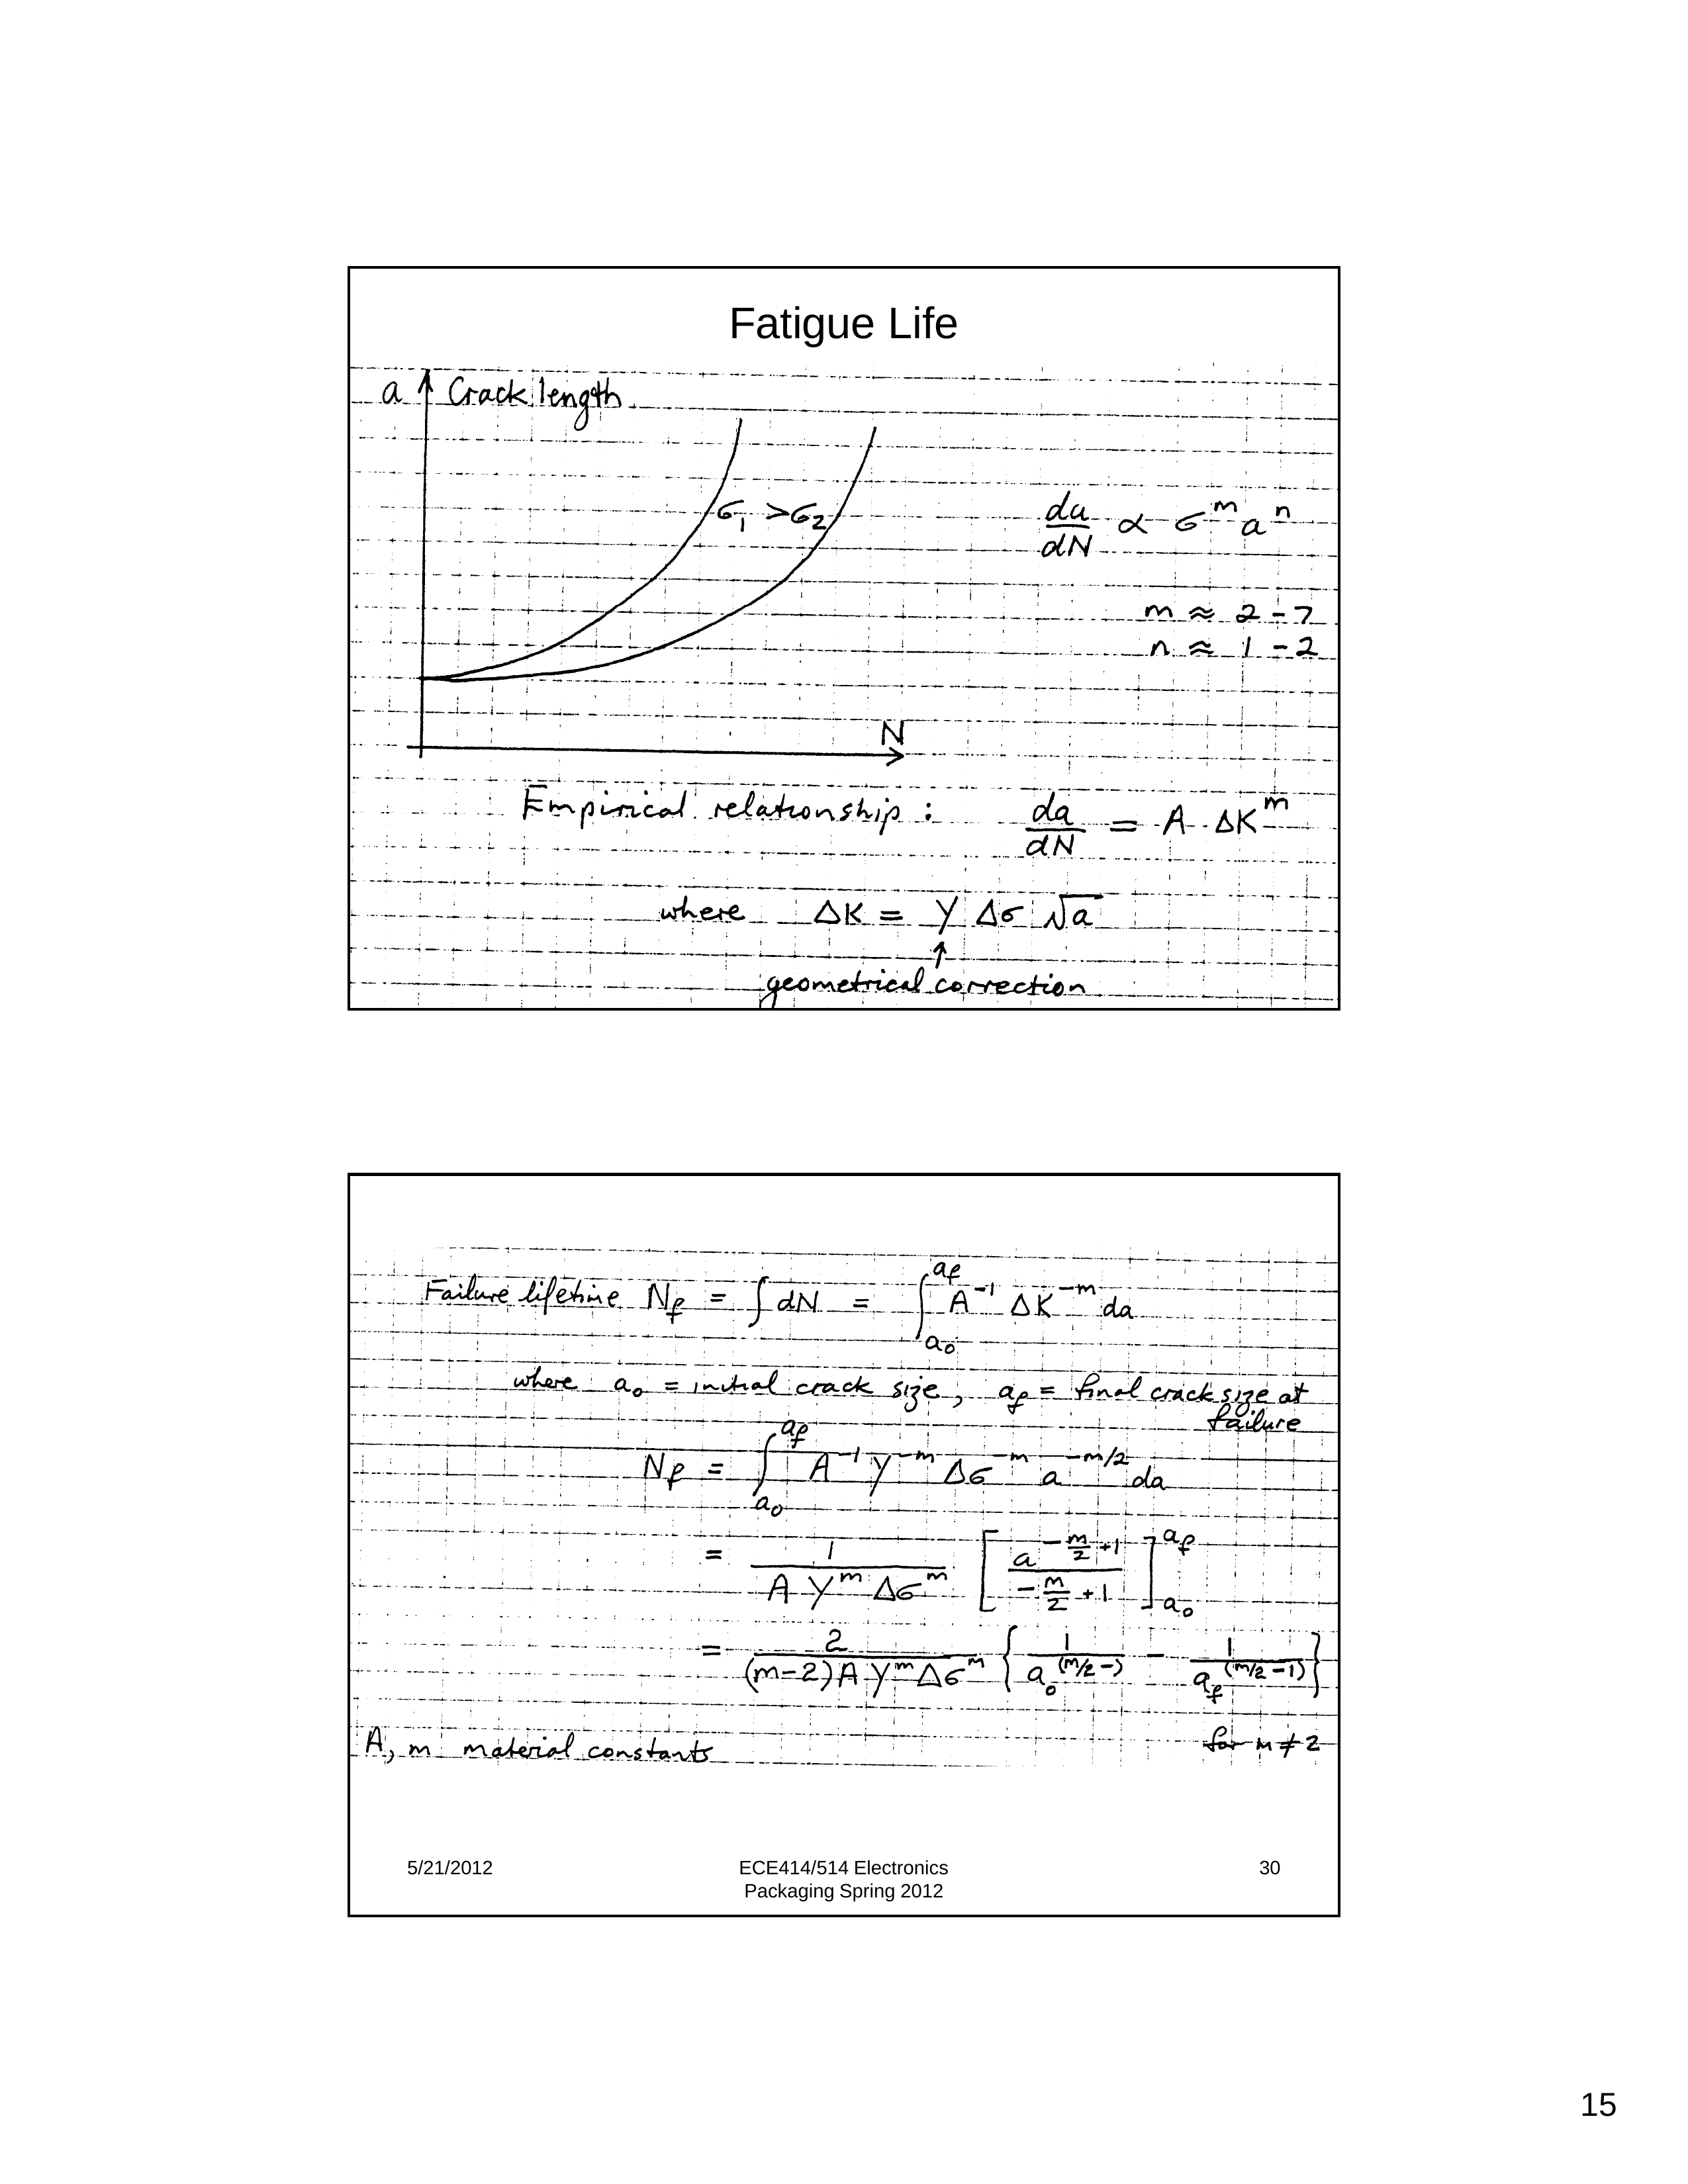 Fatigue Life
a Crack length
σ₁ > σ₂
da/dN ∝ σ^m a^n
m ≈ 2 - 7
n ≈ 1 - 2
N
Empirical relationship : da/dN = A ΔK^m
where ΔK = Y Δσ √a
↑
geometrical correction
Failure lifetime N_f = ∫ dN = ∫_{a₀}^{a_f} A^{-1} ΔK^{-m} da
where a₀ = initial crack size, a_f = final crack size at
failure
N_f = ∫_{a₀}^{a_f} A^{-1} Y^{-m} Δσ^{-m} a^{-m/2} da
= 1/(A Y^m Δσ^m) [a^{-m/2 + 1}/(-m/2 + 1)]_{a₀}^{a_f}
= 2/((m-2) A Y^m Δσ^m) {1/a₀^{(m/2 -)} - 1/a_f^{(m/2 - 1)}}
A, m material constants for m ≠ 2
5/21/2012 ECE414/514 Electronics 30
Packaging Spring 2012
15